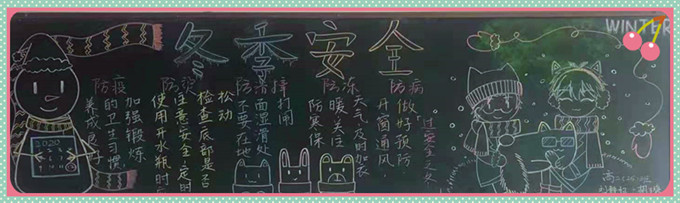 冬季安全
WINTER
防疫
养成良
的卫生习惯
加强锻炼
防灾
使用开水瓶时
注意安全,定时
检查底部是否
松动
防滑摔
不要在地
面湿滑处
打闹
防冻
防寒保
暖,关注
天气及时加衣
防病
开窗通风,
做好预防
过安全之冬
2020